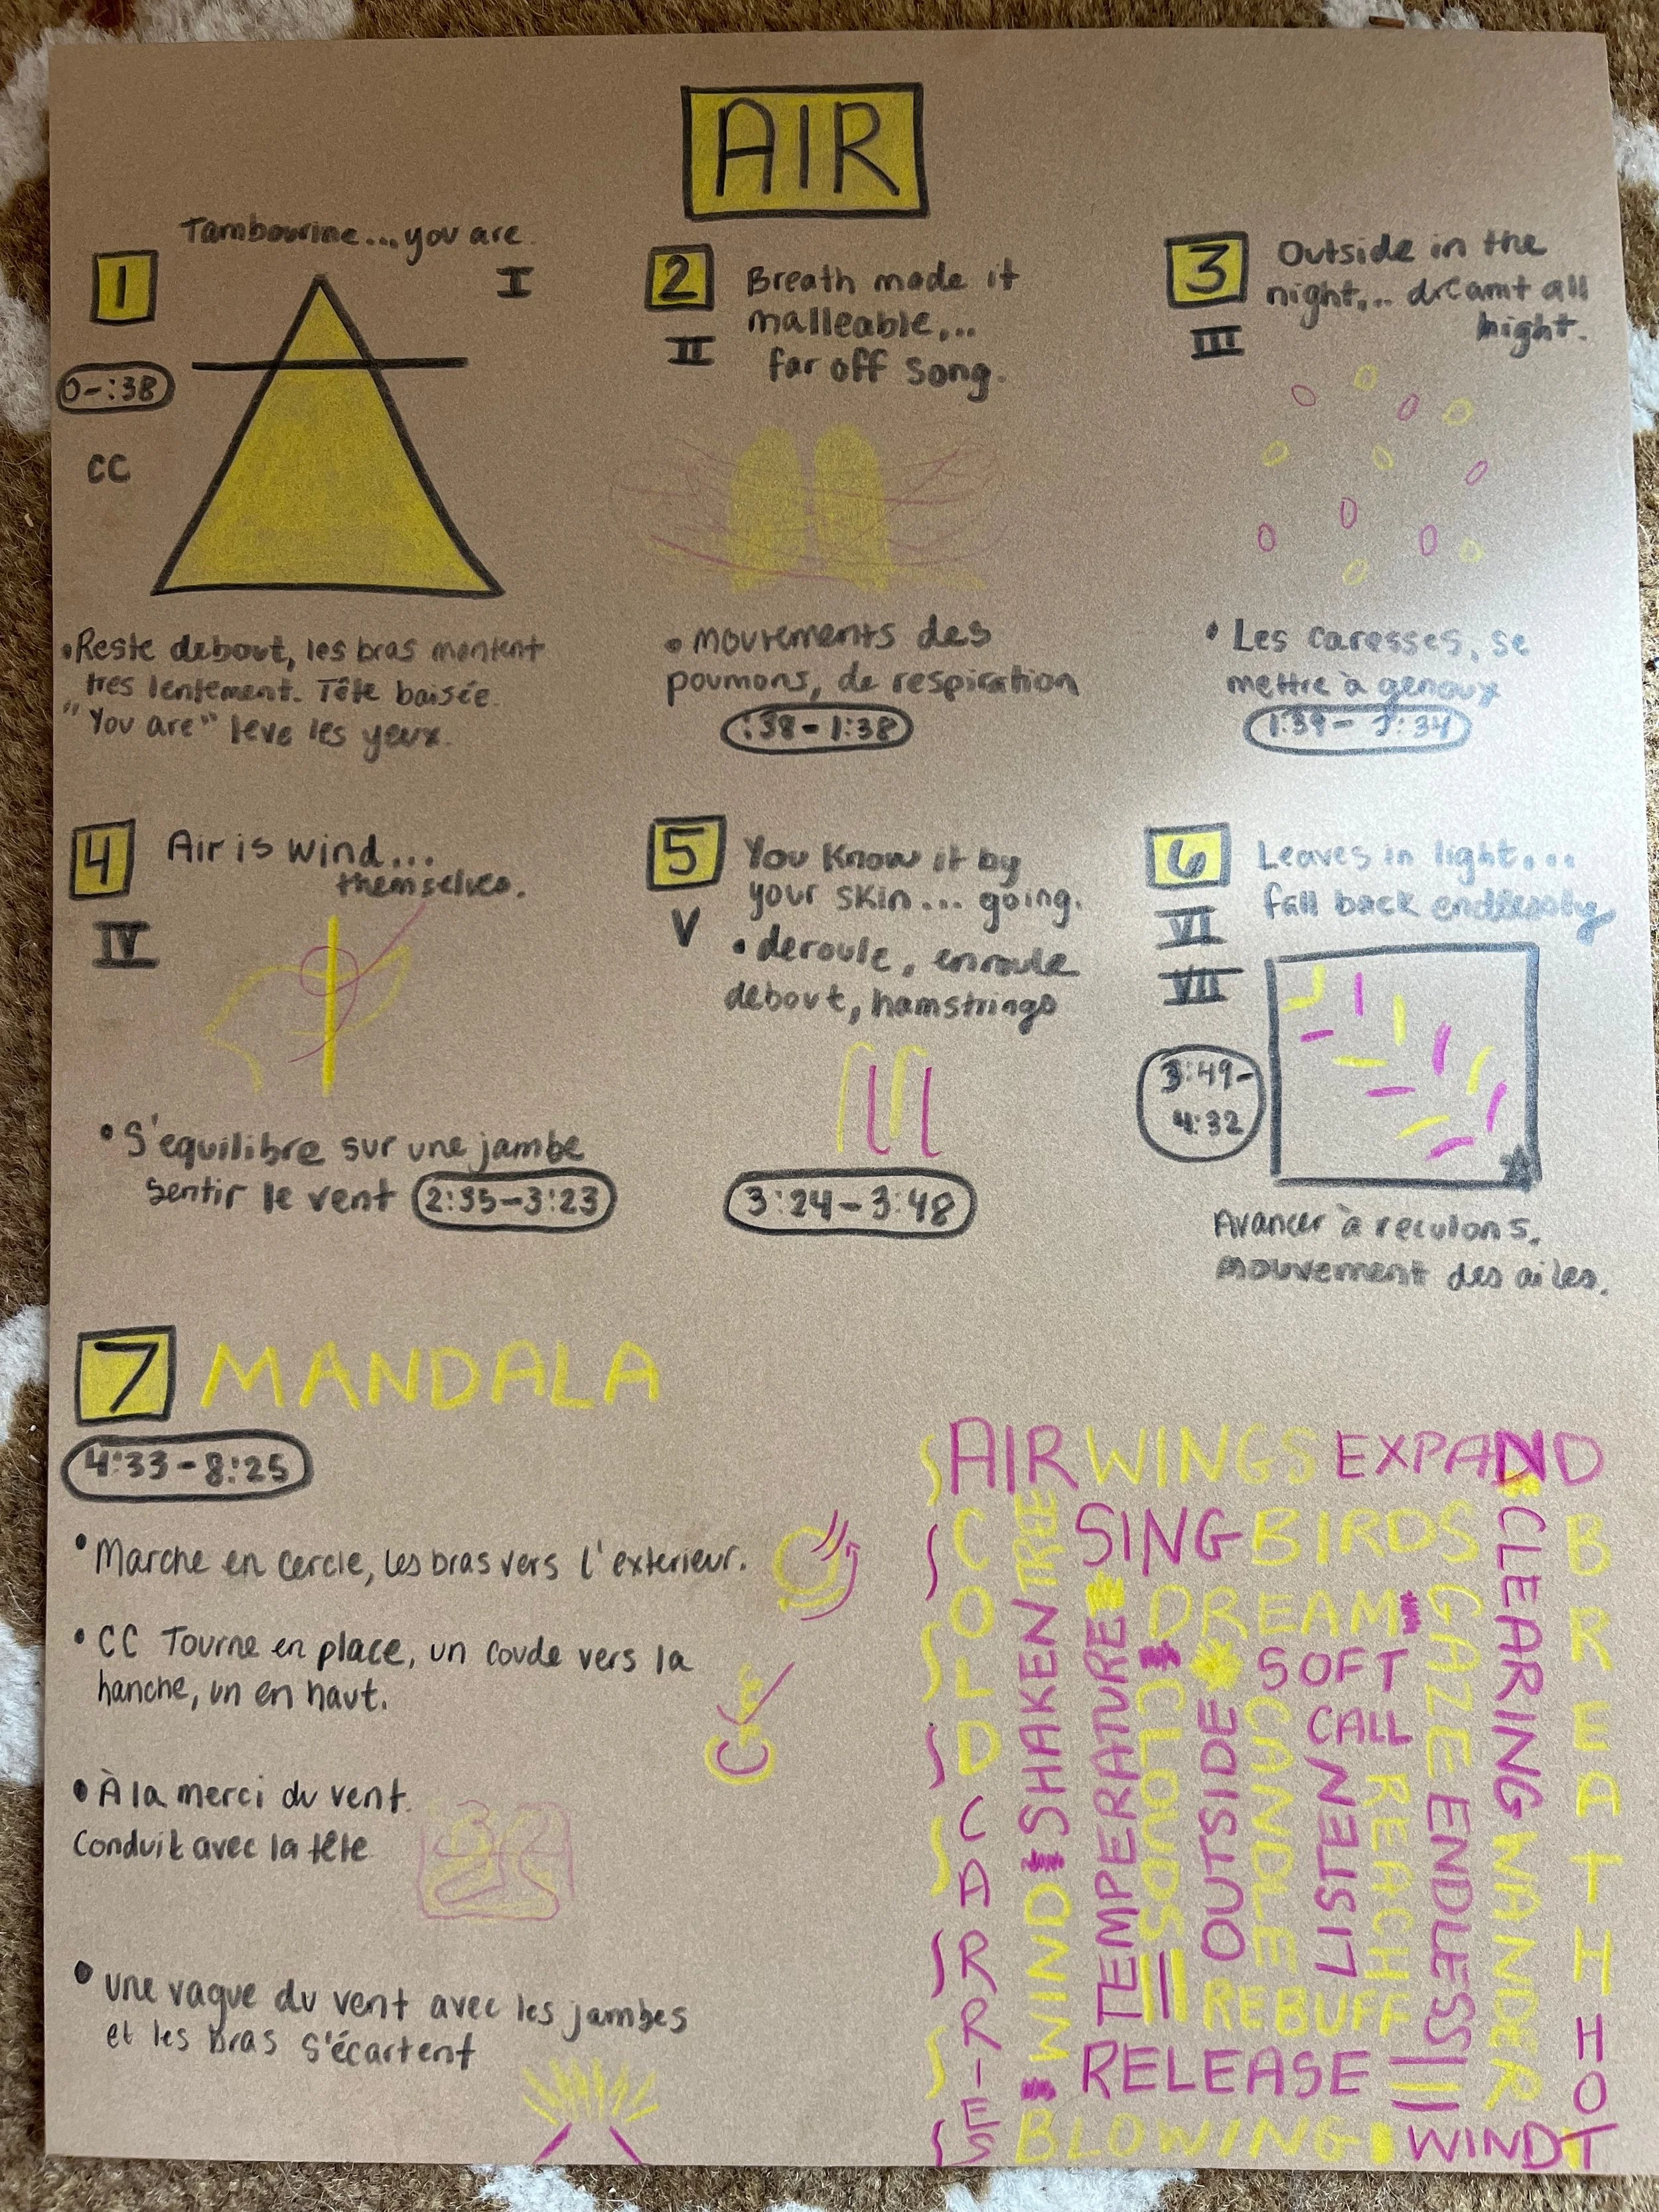 AIR
Tambourine...you are.
1
I
0-:38
CC
•Reste debout, les bras montent
tres lentement. Tête baisée.
"You are" leve les yeux.
2
II
Breath made it
malleable,...
far off song.
• mouvements des
poumons, de respiration
:38-1:38
3
III
Outside in the
night,... dreamt all
night.
• Les caresses, se
mettre à genoux
4
IV
Air is wind...
themselves.
• S'equilibre sur une jambe
sentir le vent 2:35-3:23
5
V
You know it by
your skin... going.
• deroule, enroule
debout, hamstrings
3:24-3:48
6
VI
VII
Leaves in light...
fall back endlessly
3:49-
4:32
Avancer à reculons.
mouvement des ailes.
7 MANDALA
4:33-8:25
• Marche en cercle, les bras vers l'exterieur.
• CC Tourne en place, un coude vers la
hanche, un en haut.
• À la merci du vent.
Conduit avec la tête
• Une vague du vent avec les jambes
et les bras s'écartent
AIR WINGS EXPAND
COLD
CARRIES
TREE
SHAKEN
WIND
SING BIRDS
TEMPERATURE
DREAM
CLOUDS
OUTSIDE
SOFT
CANDLE
CALL
LISTEN
REACH
GAZE
ENDLESS
CLEARING
WANDER
BREATH
HOT
REBUFF
RELEASE
BLOWING WIND